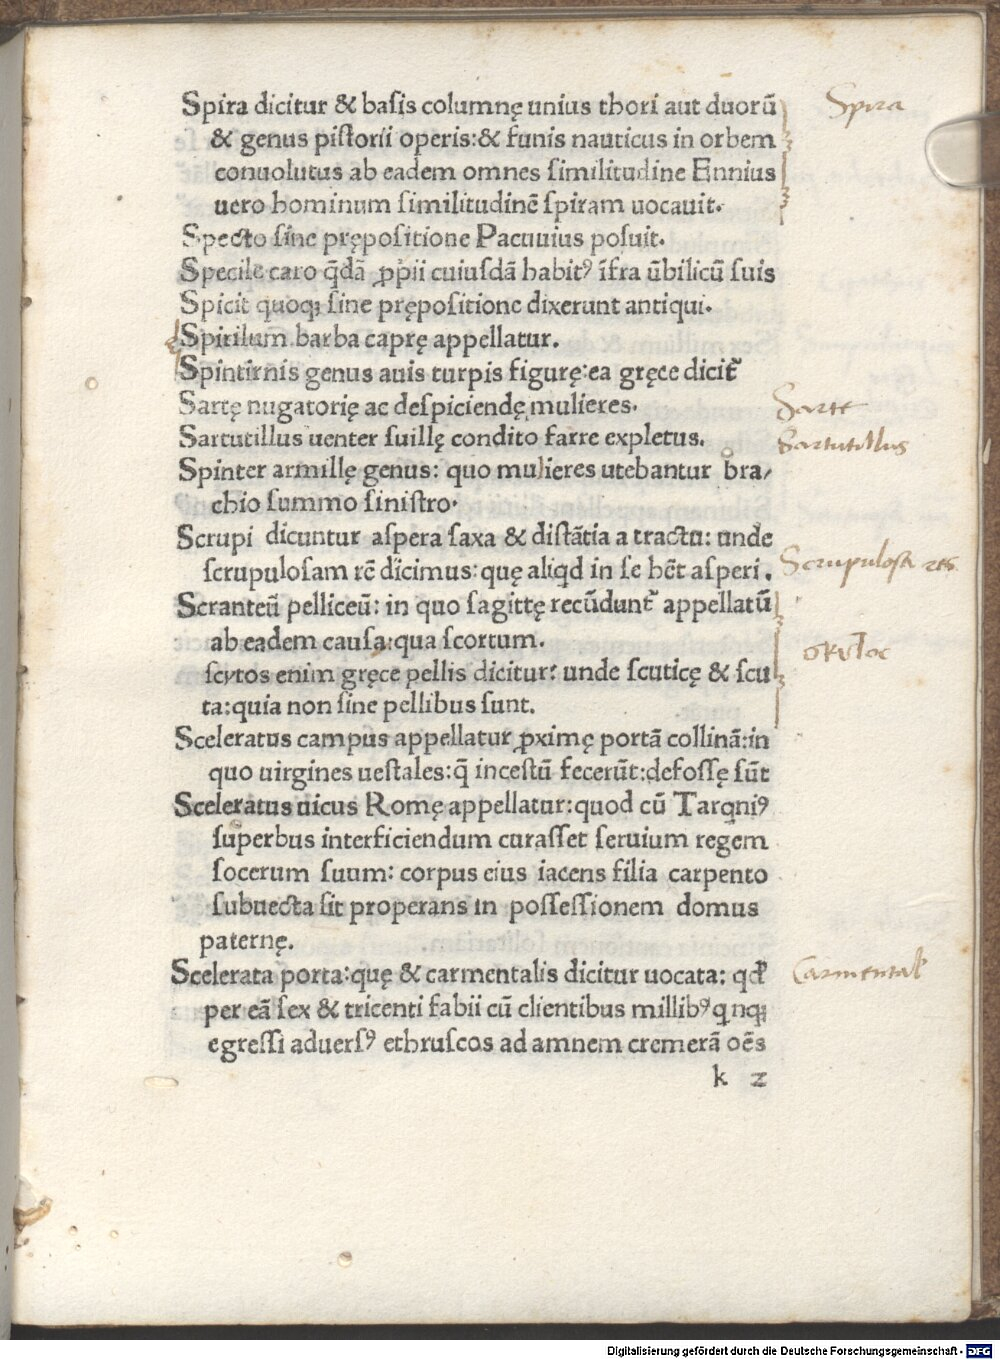 Spira dicitur & basis columnę unius thori aut duorū
& genus pistorii operis:& funis nauticus in orbem
conuolutus ab eadem omnes similitudine Ennius
uero hominum similitudinē spiram uocauit.
Specto sine prępositione Pacuuius posuit.
Specile caro q̄dā ꝓpii cuiusdā habitꝰ īfra ūbilicū suis
Spicit quoqꝫ sine prępositione dixerunt antiqui.
Spirilum barba caprę appellatur.
Spintirnis genus auis turpis figurę:ea gręce dicit᷑
Sartę nugatorię ac despiciendę mulieres.
Sartutillus uenter suillę condito farre expletus.
Spinter armillę genus: quo mulieres utebantur bra/
chio summo sinistro.
Scrupi dicuntur aspera saxa & distātia a tractu: unde
scrupulosam rē dicimus:quę aliqd in se hēt asperi.
Scranteū pelliceū: in quo sagittę recūdunt᷑ appellatū
ab eadem causa:qua scortum.
scytos enim gręce pellis dicitur: unde scuticę & scu
ta:quia non sine pellibus sunt.
Sceleratus campus appellatur ꝓximę portā collinā:in
quo uirgines uestales:q̄ incestū fecerūt:defossę sūt
Sceleratus uicus Romę appellatur:quod cū Tarqniꝰ
superbus interficiendum curasset seruium regem
socerum suum: corpus eius iacens filia carpento
subuecta sit properans in possessionem domus
paternę.
Scelerata porta:quę & carmentalis dicitur uocata: qđ
per eā sex & tricenti fabii cū clientibus millibꝰ qnqꝫ
egressi aduersꝰ ethruscos ad amnem cremerā oēs
k z
Spira
Sarte
Sartutillus
Scrupulosa res
σκυτος
Carmental
Digitalisierung gefördert durch die Deutsche Forschungsgemeinschaft - DFG